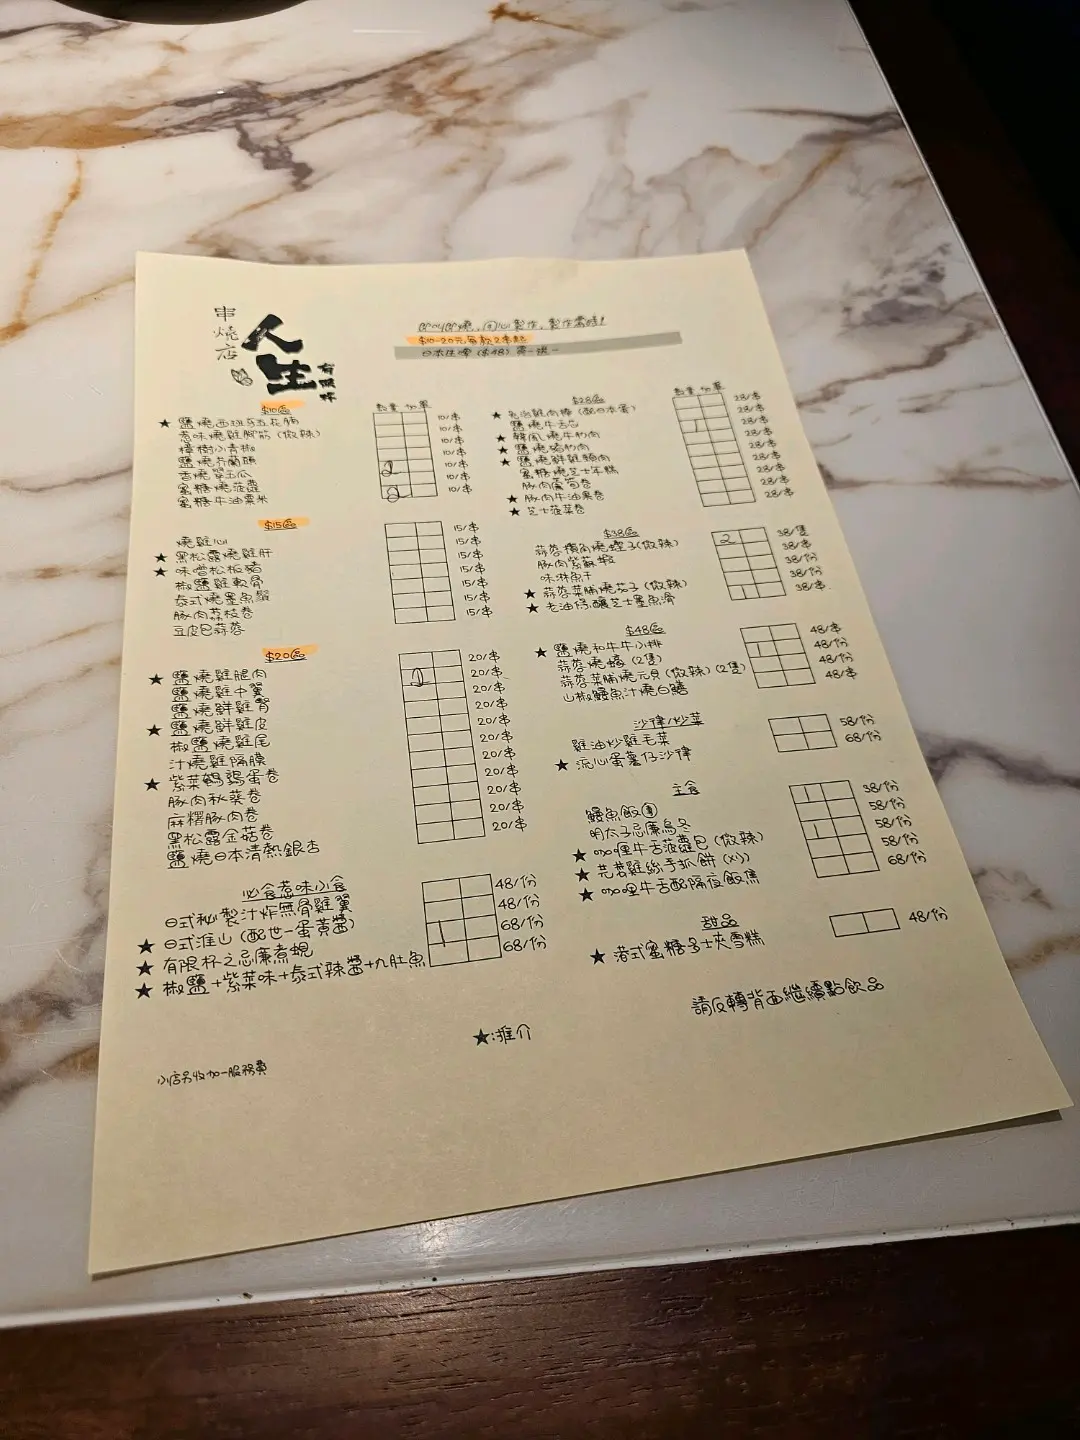 串燒店
人生
有限杯
即叫即燒,用心製作,製作需時!
$10-20元每款2串起
日本生啤($48)買一送一
$10區
數量 備單
★ 鹽燒西班牙五花腩 10/串
惹味燒雞腳筋(微辣) 10/串
樟樹小青椒 10/串
鹽燒芥蘭頭 10/串
香燒翠玉瓜 2 10/串
蜜糖燒菠蘿 10/串
蜜糖牛油粟米 2 10/串
$15區
燒雞心 15/串
★ 黑松露燒雞肝 15/串
★ 味噌松板豬 15/串
椒鹽雞軟骨 15/串
泰式燒墨魚鬚 15/串
豚肉荔枝卷 15/串
豆皮巴蒜蓉 15/串
$20區
★ 鹽燒雞腿肉 20/串
鹽燒雞中翼 2 20/串
鹽燒鮮雞腎 20/串
★ 鹽燒鮮雞皮 20/串
椒鹽燒雞尾 20/串
汁燒雞隔膜 20/串
★ 紫菜鵪鶉蛋卷 20/串
豚肉秋葵卷 20/串
麻糬豚肉卷 20/串
黑松露金菇卷 20/串
鹽燒日本清熱銀杏 20/串
必食惹味小食
日式秘製汁炸無骨雞翼 48/份
★ 日式淮山(配世一蛋黃醬) 48/份
★ 有限杯之忌廉煮蜆 1 68/份
★ 椒鹽+紫菜味+泰式辣醬+九肚魚 68/份
$28區
數量 備單
★ 免治雞肉棒(配日本蛋) 28/串
鹽燒牛舌芯 28/串
★ 韓風燒牛肋肉 1 28/串
★ 鹽燒豬肋肉 28/串
★ 鹽燒鮮雞頸肉 28/串
蜜糖燒芝士年糕 28/串
豚肉露筍卷 28/串
★ 豚肉牛油果卷 28/串
★ 芝士菠菜卷 28/串
$38區
蒜蓉橫角燒蟶子(微辣) 2 38/隻
豚肉紫蘇蝦 38/串
味淋魚干 38/份
★ 蒜蓉菜脯燒茄子(微辣) 38/份
★ 老油條釀芝士墨魚滑 1 38/串
$48區
★ 鹽燒和牛牛小排 48/串
蒜蓉燒蠔(2隻) 1 48/份
蒜蓉菜脯燒元貝(微辣)(2隻) 48/份
山椒鰻魚汁燒白鱔 48/串
沙律/炒菜
雞油炒雞毛菜 58/份
★ 流心蛋薯仔沙律 68/份
主食
鰻魚飯 1 38/份
明太子忌廉烏冬 58/份
★ 咖哩牛舌菠蘿包(微辣) 1 58/份
★ 芫荽雞絲手抓餅 58/份
★ 咖哩牛舌配隔夜飯焦 68/份
甜品
★ 港式蜜糖多士夾雪糕 48/份
請反轉背面繼續點飲品
★:推介
小店另收加一服務費